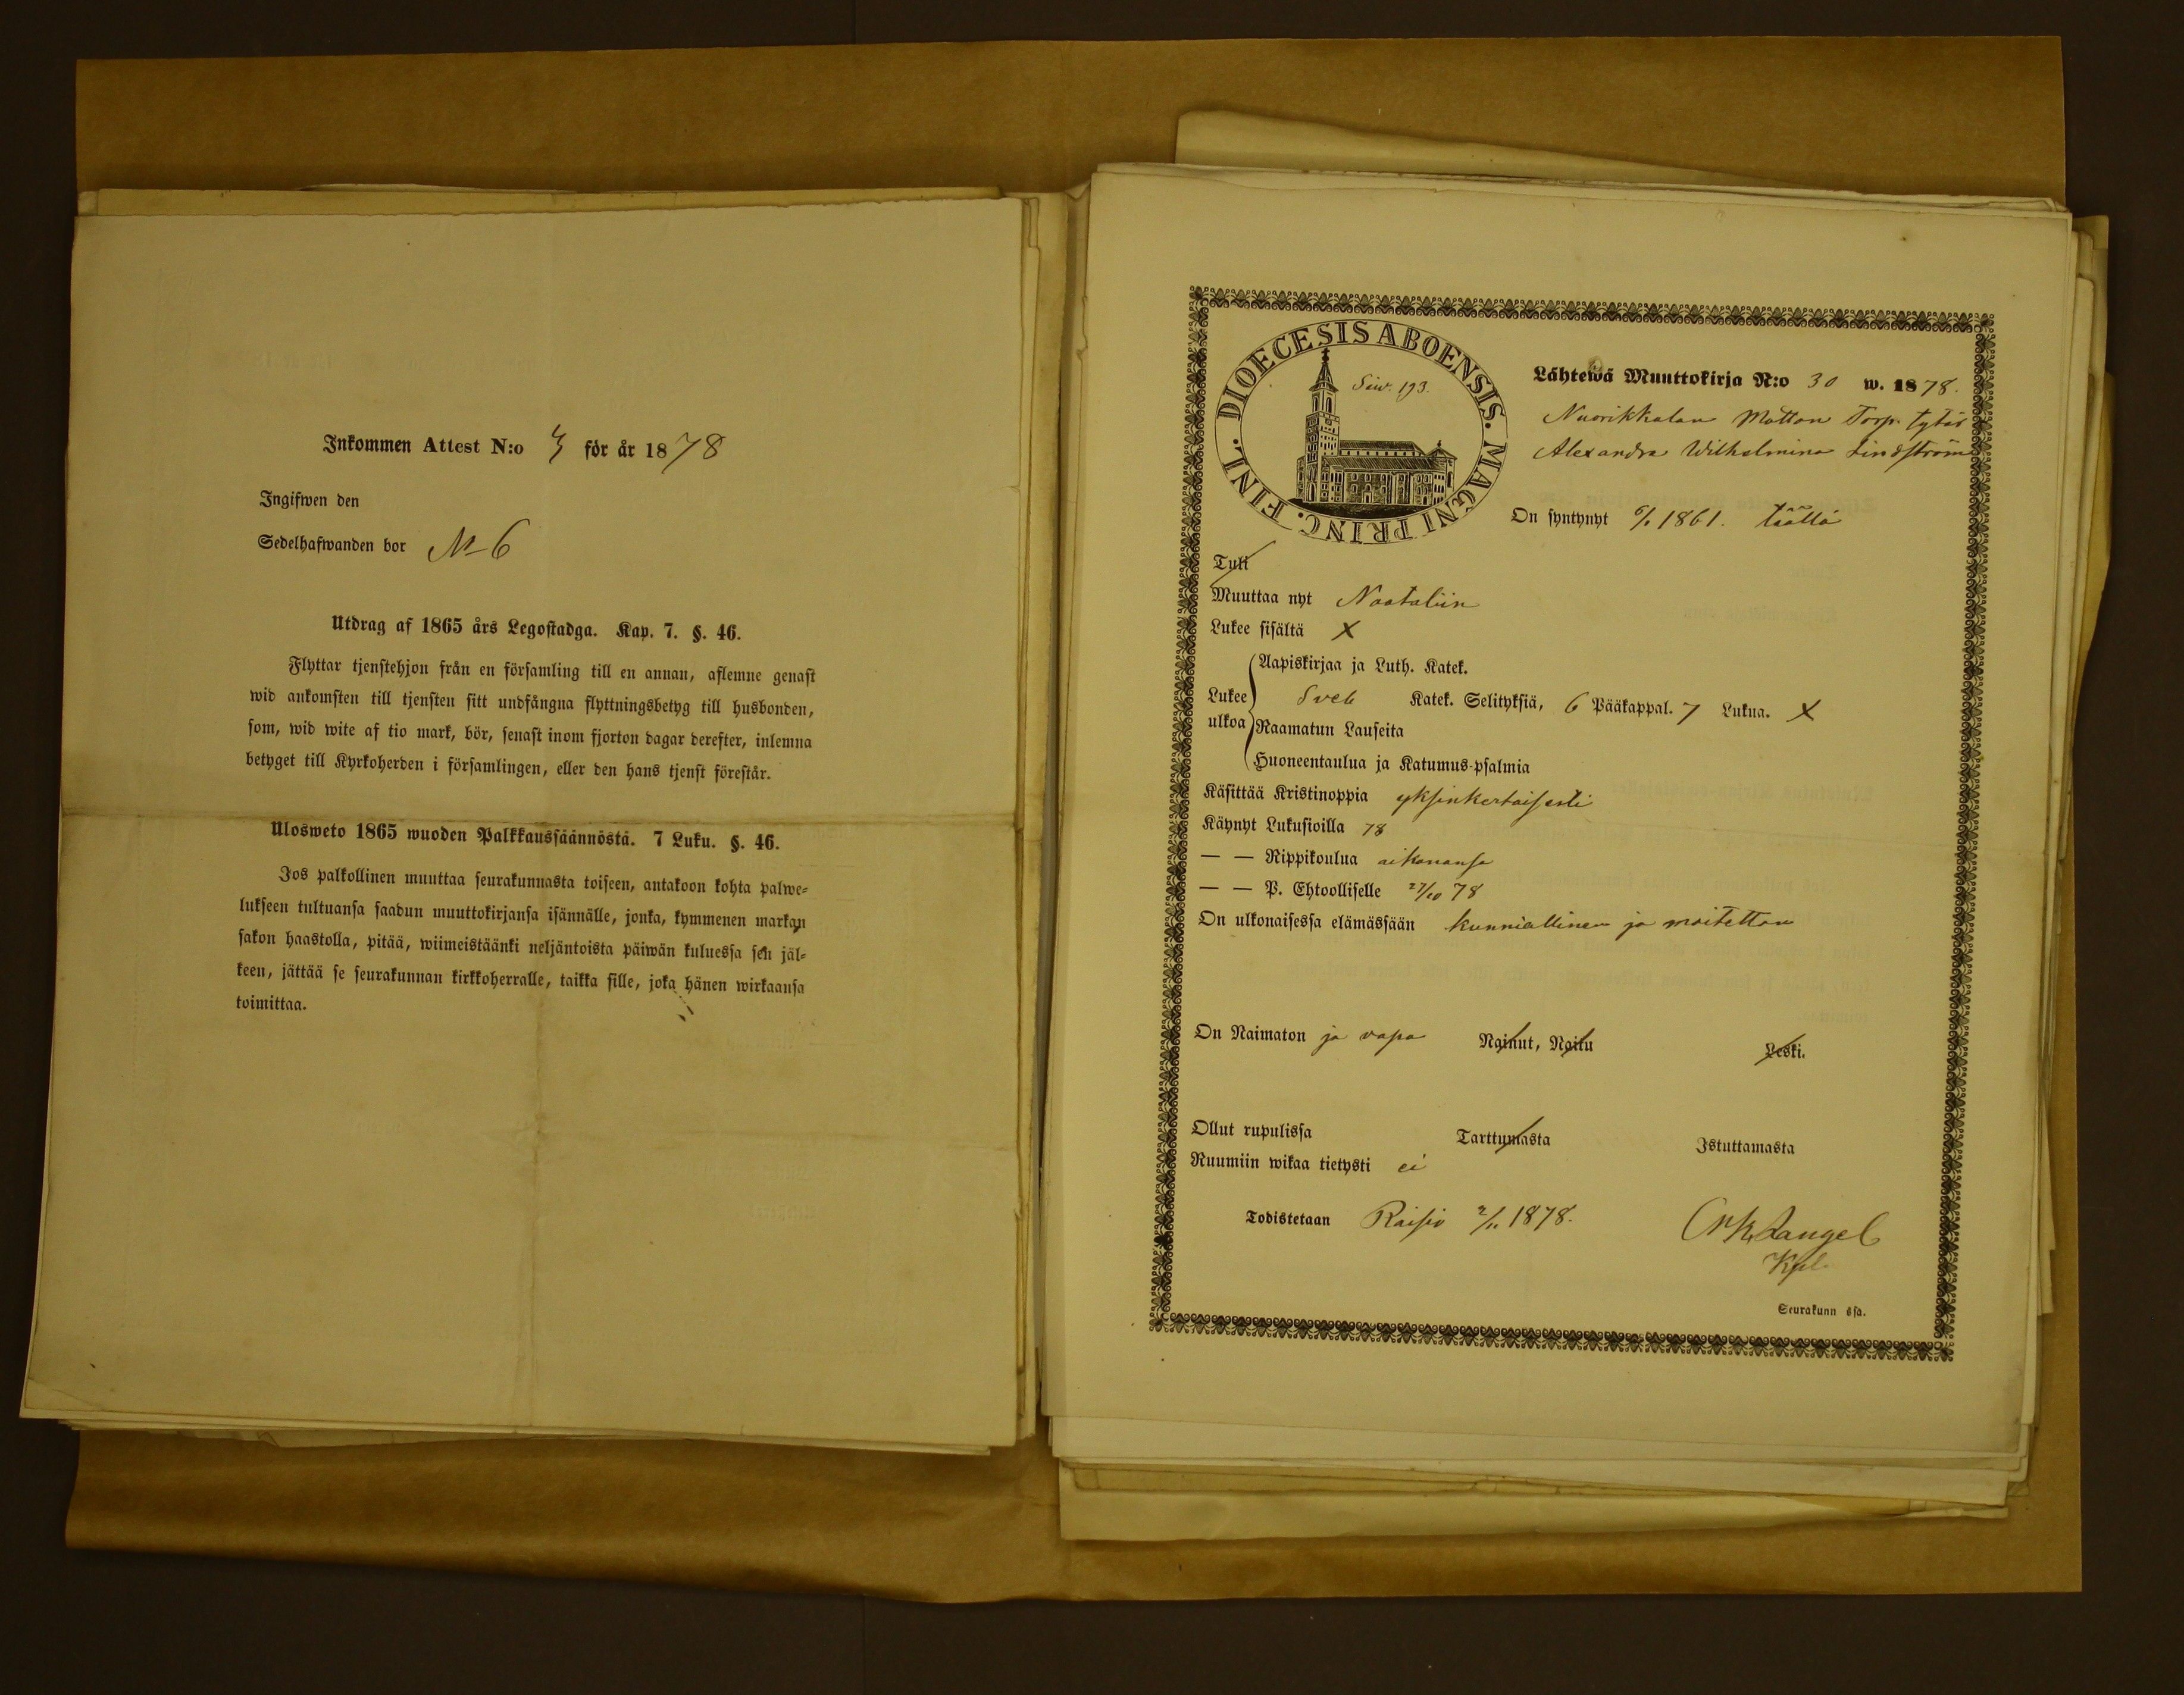 Inkommen Attest N:o 3 för år 1878
Ingifwen den
Sedelhafwanden bor No 6
Utdrag af 1865 års Legostadga. Kap. 7. §. 46.
Flyttar tjenstehjon från en församling till en annan, aflemne genast
wid ankomsten till tjensten sitt undfångna flyttningsbetyg till husbonden,
som, wid wite af tio mark, bör, senast inom fjorton dagar derefter, inlemna
betyget till Kyrkoherden i församlingen, eller den hans tjenst förestår.
Ulosweto 1865 wuoden Palkkaussäännöstä. 7 Luku. §. 46.
Jos palkollinen muuttaa seurakunnasta toiseen, antakoon kohta palwe=
lukseen tultuansa saadun muuttokirjansa isännälle, jonka, kymmenen markan
sakon haastolla, pitää, wiimeistäänki neljäntoista päiwän kuluessa sen jäl=
keen, jättää se seurakunnan kirkkoherralle, taikka sille, joka hänen wirkaansa
toimittaa.
DIOECESIS ABOENSIS. MAGNI PRINC. FINL.
Siw. 193.
Lähtewä Muuttokirja N:o 30 w. 1878.
Nuorikkalan Mattan Torp. tytär
Alexandra Wilhelmina Lindström
On syntynyt 6/1 1861. täällä
Tuli
Muuttaa nyt Naataliin
Lukee sisältä X
Aapiskirjaa ja Luth. Katek.
Lukee Sveb Katek. Selityksiä, 6 Pääkappal. 7 Lukua. X
ulkoa Raamatun Lauseita
Huoneentaulua ja Katumus-psalmia
Käsittää Kristinoppia yksinkertaisesti
Käynyt Lukusioilla 78
— — Rippikoulua aikanansa
— — P. Ehtoolliselle 27/10 78
On ulkonaisessa elämässään kunniallinen ja moitetton
On Naimaton ja vapa Nainut, Naitu Leski.
Ollut rupulissa Tarttumasta Istuttamasta
Ruumiin wikaa tietysti ei
Todistetaan Raisio 2/11 1878.
Langel
Kpl.
Seurakunn ssa.